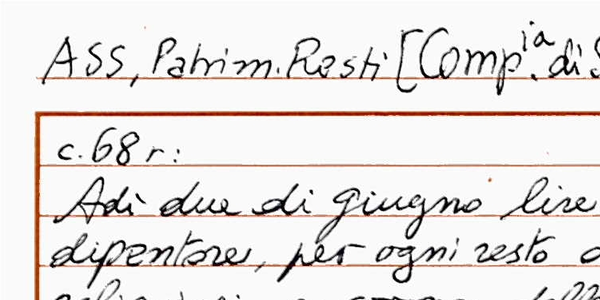 ASS, Patrim. Resti [Comp.ia di S
c. 68 r:
Adi due di giugno lire
dipentore, per ogni resto